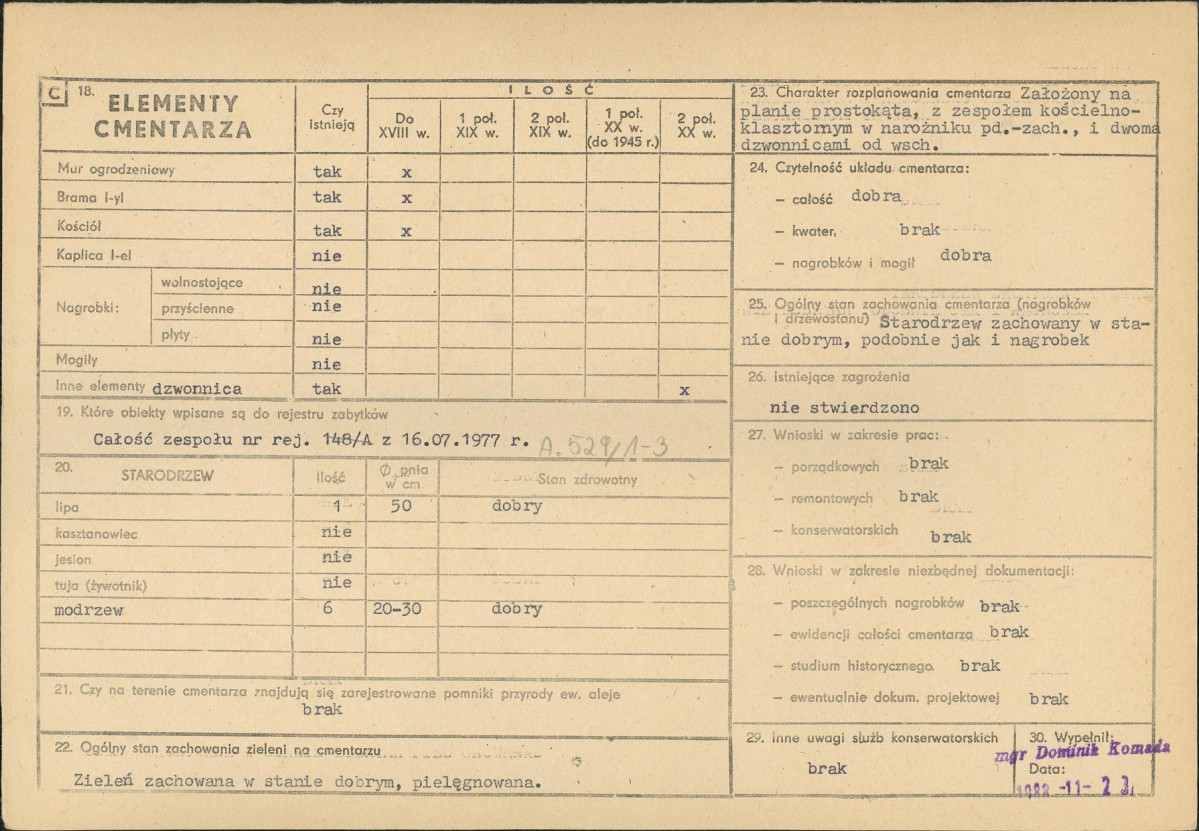 C 18. ELEMENTY CMENTARZA
Czy istnieją
ILOŚĆ
Do XVIII w.
1 poł. XIX w.
2 poł. XIX w.
1 poł. XX w. (do 1945 r.)
2 poł. XX w.
Mur ogrodzeniowy tak x
Brama I-yl tak x
Kościół tak x
Kaplica I-el nie
Nagrobki:
wolnostojące nie
przyścienne nie
płyty nie
Mogiły nie
Inne elementy dzwonnica tak x
19. Które obiekty wpisane są do rejestru zabytków
Całość zespołu nr rej. 148/A z 16.07.1977 r. A.529/1-3
20. STARODRZEW Ilość Ø pnia w cm Stan zdrowotny
lipa 1 50 dobry
kasztanowiec nie
jesion nie
tuja (żywotnik) nie
modrzew 6 20-30 dobry
21. Czy na terenie cmentarza znajdują się zarejestrowane pomniki przyrody ew. aleje
brak
22. Ogólny stan zachowania zieleni na cmentarzu
Zieleń zachowana w stanie dobrym, pielęgnowana.
23. Charakter rozplanowania cmentarza Założony na
planie prostokąta, z zespołem kościelno-
klasztornym w narożniku pd.-zach., i dwoma
dzwonnicami od wsch.
24. Czytelność układu cmentarza:
– całość dobra
– kwater, brak
– nagrobków i mogił dobra
25. Ogólny stan zachowania cmentarza (nagrobków
i drzewostanu) Starodrzew zachowany w sta-
nie dobrym, podobnie jak i nagrobek
26. Istniejące zagrożenia
nie stwierdzono
27. Wnioski w zakresie prac:
– porządkowych brak
– remontowych brak
– konserwatorskich brak
28. Wnioski w zakresie niezbędnej dokumentacji:
– poszczególnych nagrobków brak
– ewidencji całości cmentarza brak
– studium historycznego. brak
– ewentualnie dokum. projektowej brak
29. Inne uwagi służb konserwatorskich
brak
30. Wypełnił:
mgr Dominik Komada
Data:
1988 -11- 23.